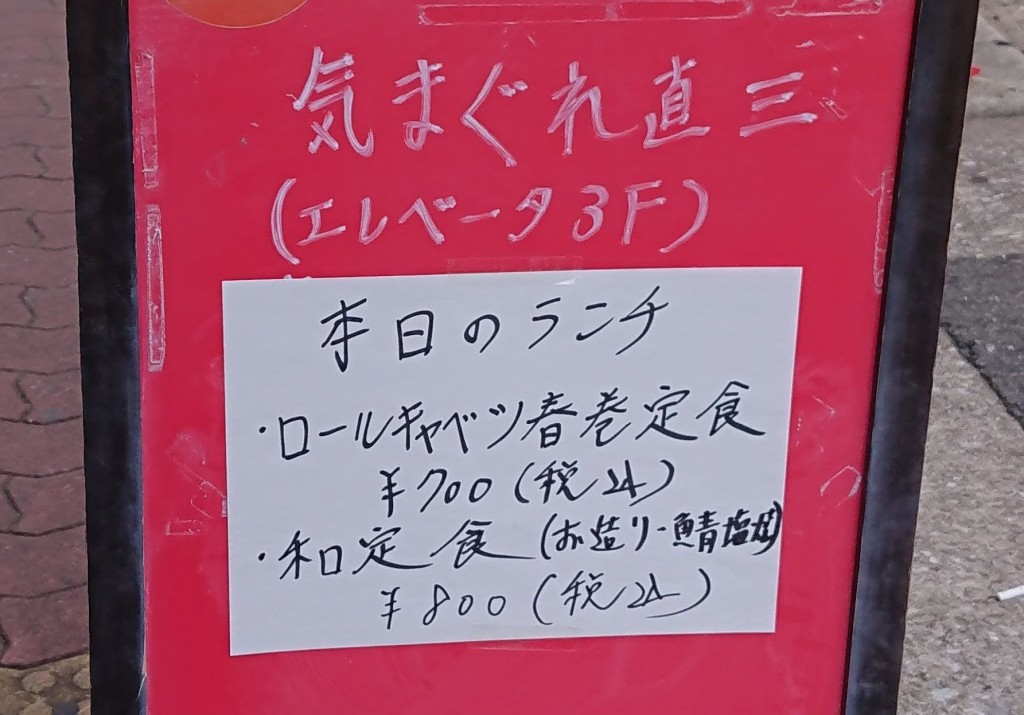 気まぐれ直三
(エレベータ3F)
本日のランチ
・ロールキャベツ春巻定食
¥700(税込)
・和定食(お造り・鯖塩焼)
¥800(税込)